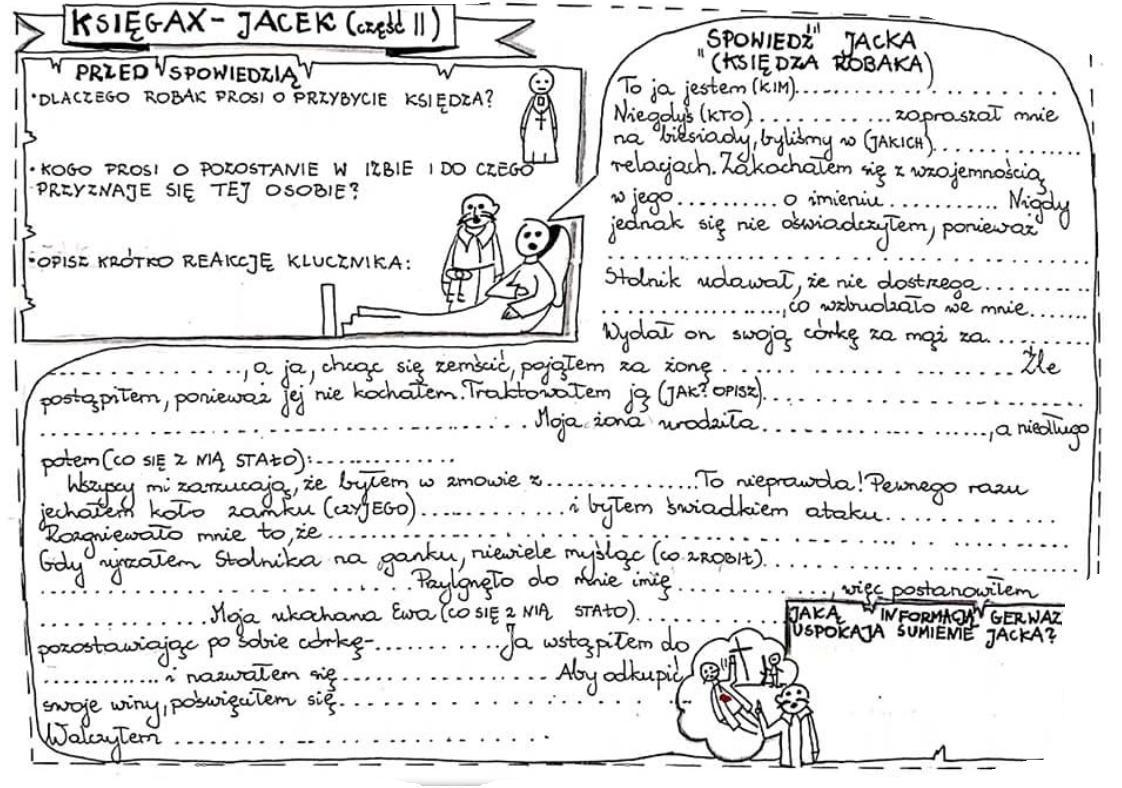 KSIĘGA X - JACEK (część II)
PRZED SPOWIEDZIĄ
• DLACZEGO ROBAK PROSI O PRZYBYCIE KSIĘDZA?
• KOGO PROSI O POZOSTANIE W IZBIE I DO CZEGO
PRZYZNAJE SIĘ TEJ OSOBIE?
• OPISZ KRÓTKO REAKCJĘ KLUCZNIKA:
"SPOWIEDŹ" JACKA
(KSIĘDZA ROBAKA)
To ja jestem (KIM)....................
Niegdyś (KTO)............zapraszał mnie
na biesiady, byliśmy w (JAKICH)..............
relacjach. Zakochałem się z wzajemnością
w jego.......... o imieniu........... Nigdy
jednak się nie oświadczyłem, ponieważ
..................................................
Stolnik udawał, że nie dostrzega..........
..................,co wzbudzało we mnie.......
Wydał on swoją córkę za mąż za.........
..................,a ja, chcąc się zemścić, pojąłem za żonę .............................. Źle
postąpiłem, ponieważ jej nie kochałem. Traktowałem ją (JAK? OPISZ)..............................
.................................................. Moja żona urodziła......................,a niedługo
potem (CO SIĘ Z NIĄ STAŁO):..............
Wszyscy mi zarzucają, że byłem w zmowie z...............To nieprawda! Pewnego razu
jechałem koło zamku (CZYJEGO)............... i byłem świadkiem ataku....................
Rozgniewało mnie to, że ..................................................
Gdy ujrzałem Stolnika na ganku, niewiele myśląc (CO ZROBIŁ)..............................
.............................. Przylgnęło do mnie imię ...............,więc postanowiłem
.................Moja ukochana Ewa (CO SIĘ Z NIĄ STAŁO)....................
pozostawiając po sobie córkę-............. Ja wstąpiłem do
............ i nazwałem się.................... Aby odkupić
swoje winy, poświęciłem się..............................
Walczyłem ........................................
JAKĄ INFORMACJĄ GERWAZ
USPOKAJA SUMIENIE JACKA?